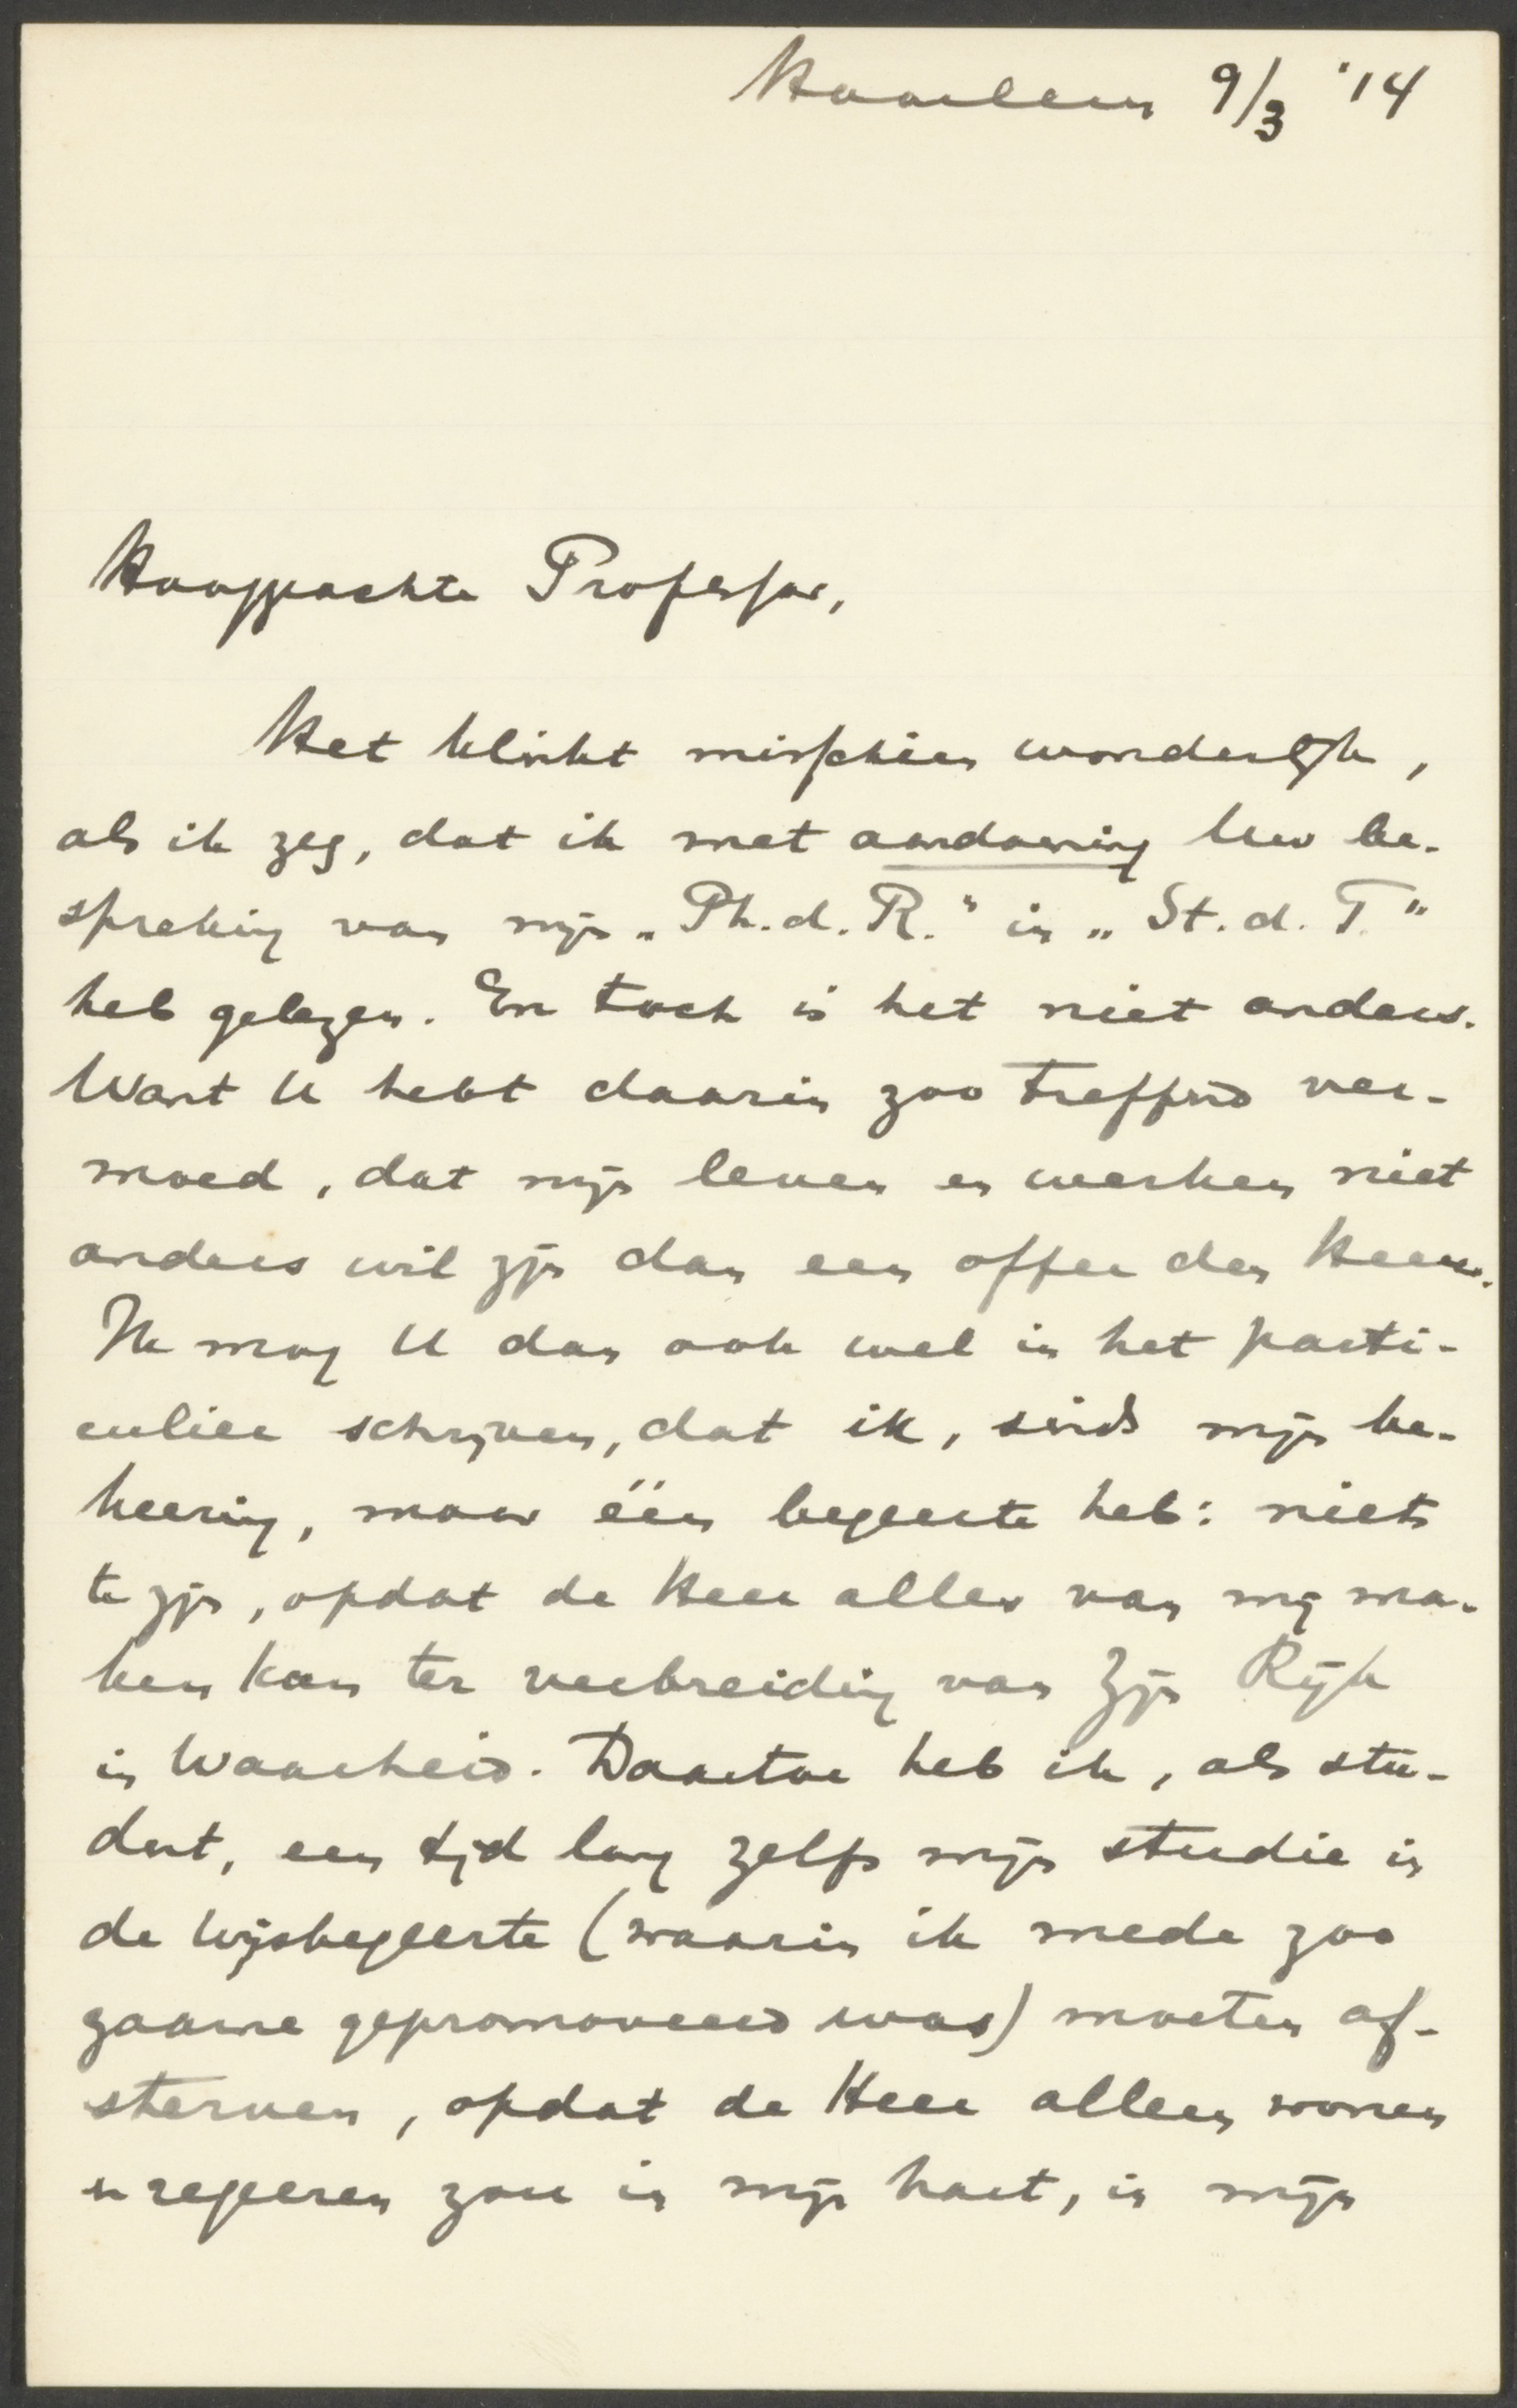 Haarlem 9/3 '14
Hooggeachte Professor,
Het klinkt misschien wonderlijk,
als ik zeg, dat ik met aandoening Uw be-
spreking van mijn „Ph. d. R." in „St. d. T."
heb gelezen. En toch is het niet anders.
Want U hebt daarin zoo treffend ver-
moed, dat mijn leven en werken niet
anders wil zijn dan een offer den Heere.
Ik mag U dan ook wel in het parti-
culier schrijven, dat ik, sinds mijn be-
keering, maar één begeerte heb: niets
te zijn, opdat de Heer alles van mij ma-
ken kan ter verbreiding van Zijn Rijk
in Waarheid. Daartoe heb ik, als stu-
dent, een tijd lang zelfs mijn studie in
de wijsbegeerte (waarin ik mede zoo
gaarne gepromoveerd was) moeten af-
sterven, opdat de Heer alleen wonen
en regeeren zou in mijn hart, in mijn